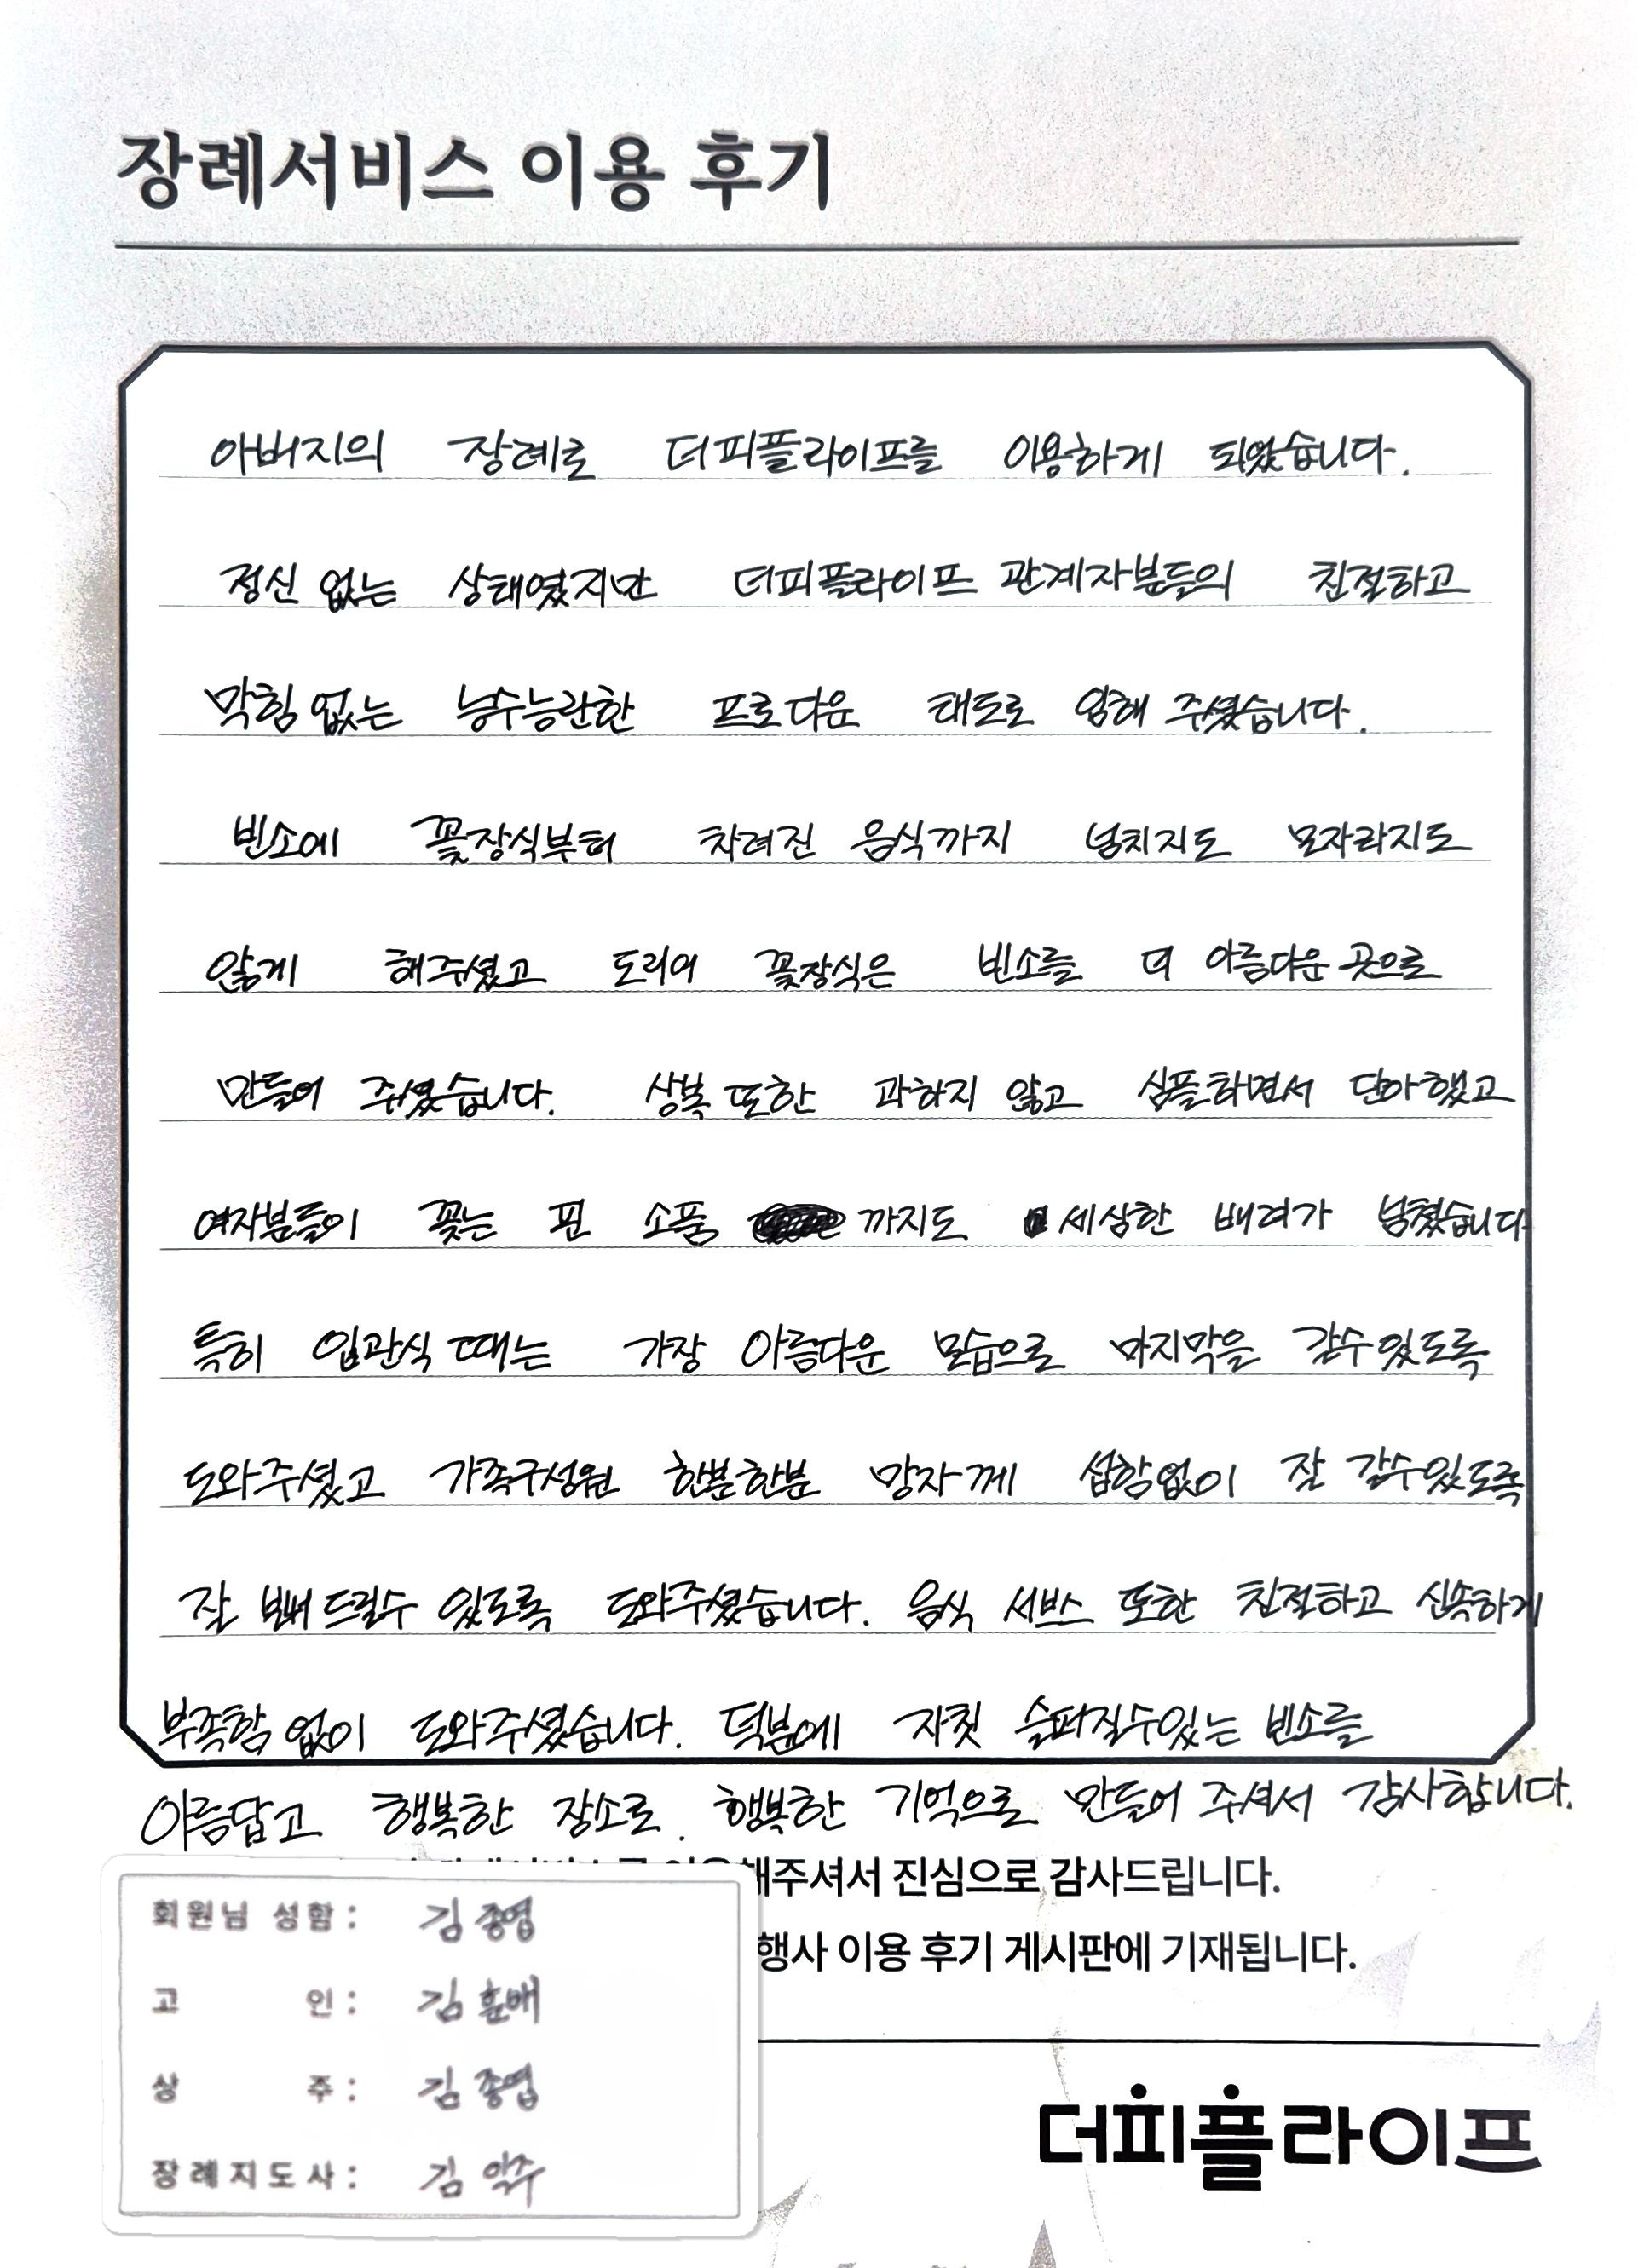 장례서비스 이용 후기
아버지의 장례로 더피플라이프를 이용하게 되었습니다.
정신 없는 상태였지만 더피플라이프 관계자분들의 친절하고
막힘 없는 능수능란한 프로다운 태도로 임해 주셨습니다.
빈소에 꽃장식부터 차려진 음식까지 넘치지도 모자라지도
않게 해주셨고 도리어 꽃장식은 빈소를 더 아름다운 곳으로
만들어 주셨습니다. 상복 또한 과하지 않고 심플하면서 단아했고
여자분들이 꽂는 핀 소품 까지도 세상한 배려가 넘쳤습니다
특히 입관식 때는 가장 아름다운 모습으로 마지막을 갈수있도록
도와주셨고 가족구성원 한분한분 망자께 섭함없이 잘 갈수있도록
잘 보내 드릴수 있도록 도와주셨습니다. 음식 서비스 또한 친절하고 신속하게
부족함 없이 도와주셨습니다. 덕분에 자칫 슬퍼질수있는 빈소를
아름답고 행복한 장소로. 행복한 기억으로 만들어 주셔서 감사합니다.
해주셔서 진심으로 감사드립니다.
행사 이용 후기 게시판에 기재됩니다.
회원님 성함 : 김종엽
고 인 : 김훈배
상 주 : 김종엽
장례지도사 : 김익주
더피플라이프